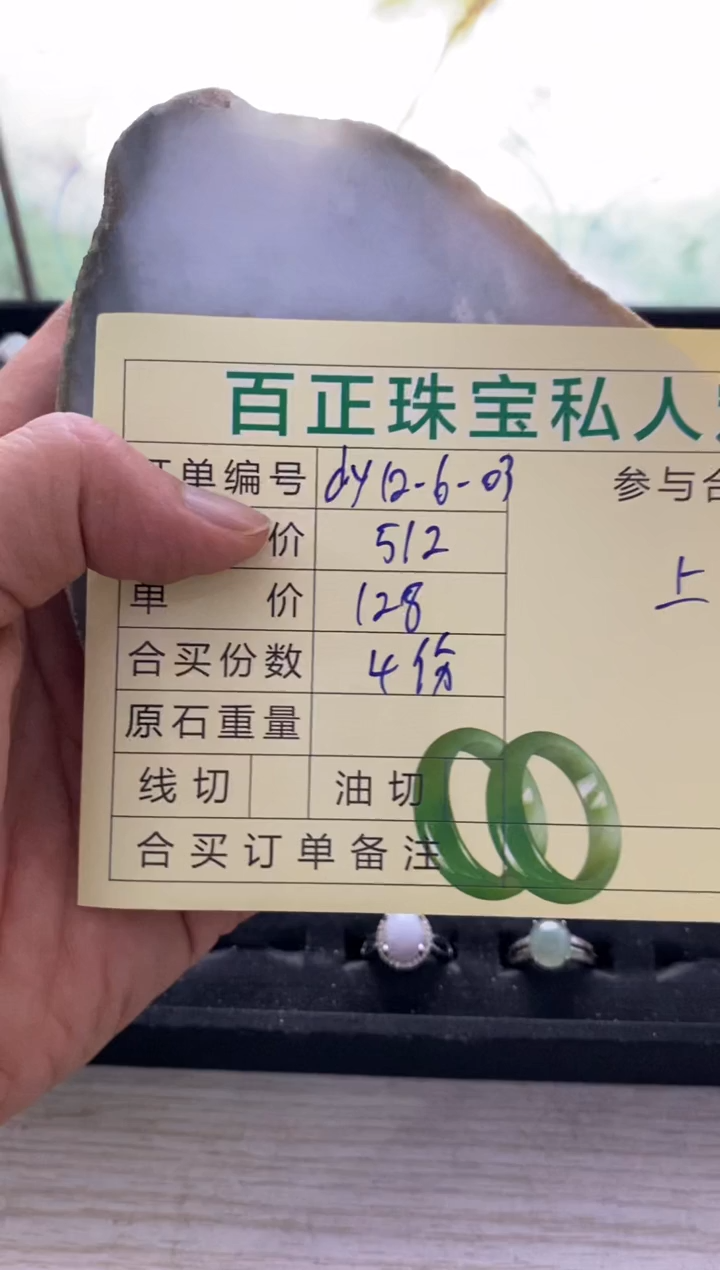 百正珠宝私人
单编号 dy12-6-03 参与合
价 512
上
单 价 128
合买份数 4份
原石重量
线切 油切
合买订单备注